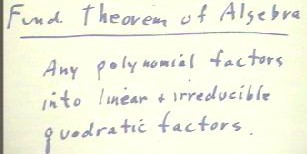 Fund. Theorem of Algebra
Any polynomial factors
into linear + irreducible
quadratic factors.